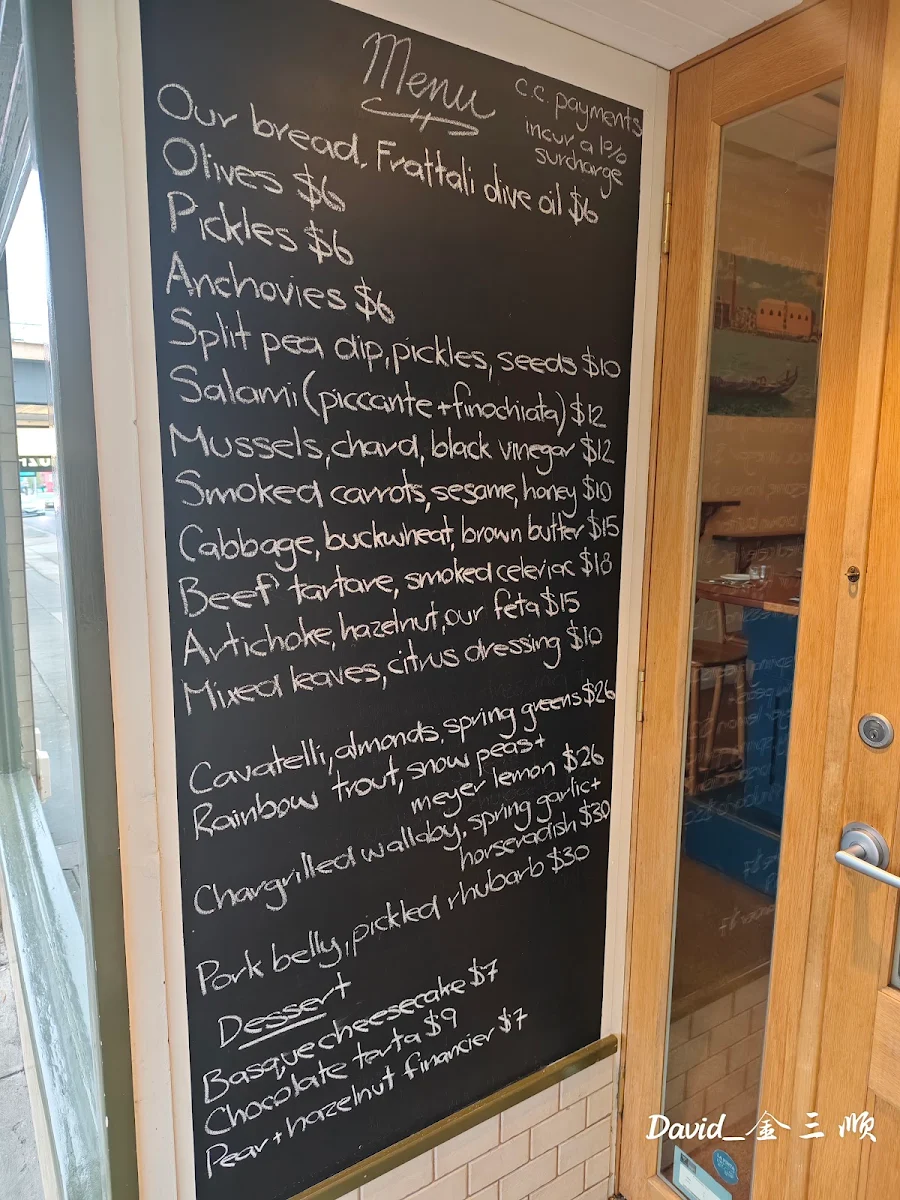 Menu
c.c. payments
incur a 1%
surcharge
Our bread, Frattali olive oil $6
Olives $6
Pickles $6
Anchovies $6
Split pea dip, pickles, seeds $10
Salami (piccante + finochiata) $12
Mussels, chard, black vinegar $12
Smoked carrots, sesame, honey $10
Cabbage, buckwheat, brown butter $15
Beef tartare, smoked celeriac $18
Artichoke, hazelnut, our feta $15
Mixed leaves, citrus dressing $10
Cavatelli, almonds, spring greens $26
Rainbow trout, snow peas +
meyer lemon $26
Chargrilled wallaby, spring garlic +
horseradish $30
Pork belly, pickled rhubarb $30
Dessert
Basque cheesecake $7
Chocolate torta $9
Pear + hazelnut financier $7
David_金三顺